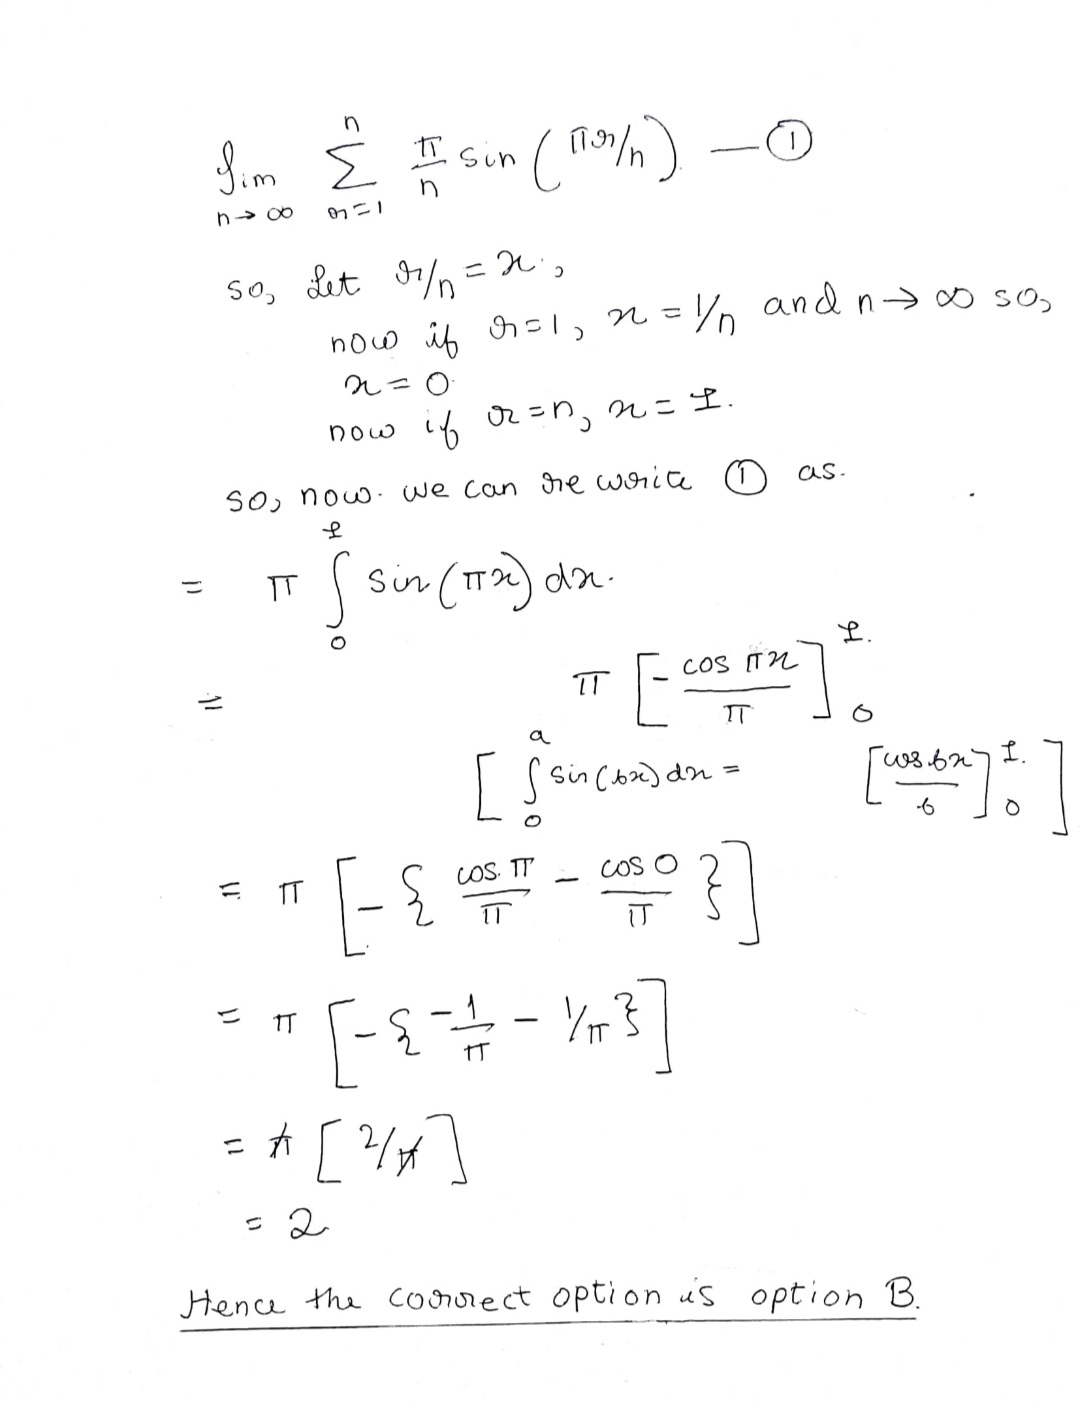 lim n→∞ n Σ r=1 π/n sin (πr/n) — ①
so, Let r/n = x,
now if r=1, x = 1/n and n→ ∞ so,
x = 0
now if r=n, x = 1.
so, now we can re write ① as.
= π ∫₀¹ sin (πx) dx.
= π [- cos πx / π]₀¹.
[ ∫₀ᵃ sin (bx) dx = [cos bx / b]₀¹. ]
= π [- { cos π / π - cos 0 / π }]
= π [- { -1/π - 1/π }]
= π [2/π]
= 2
Hence the correct option is option B.